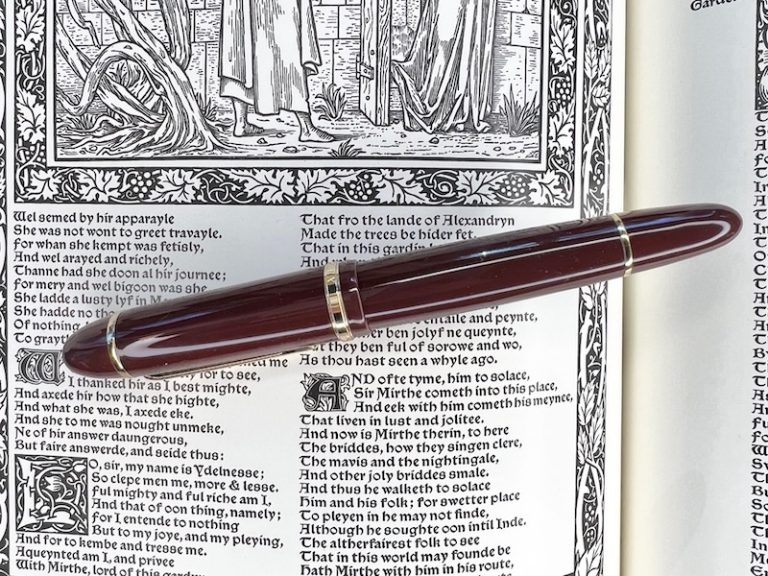 Wel semed by hir apparayle
She was not wont to greet travayle.
for whan she kempt was fetisly,
And wel arayed and richely,
Thanne had she doon al hir journee;
for mery and wel bigoon was she.
She ladde a lusty lyf in
She hadde no
Of nothing
To
me
for to see,
I thanked hir as I best mighte,
And axede hir how that she highte,
And what she was, I axede eke.
And she to me was nought unmeke,
Ne of hir answer daungerous,
But faire answerde, and seide thus:
LO, sir, my name is Ydelnesse;
So clepe men me, more & lesse.
ful mighty and ful riche am I,
And that of oon thing, namely;
for I entende to nothing
But to my joye, and my pleying,
And for to kembe and tresse me.
Aqueynted am I, and privee
With Mirthe, lord of this
That fro the lande of Alexandryn
Made the trees be hider fet,
That in this
and peynte,
ben jolyf ne queynte,
they ben ful of sorowe and wo,
As thou hast seen a whyle ago.
AND ofte tyme, him to solace,
Sir Mirthe cometh into this place,
And eek with him cometh his meynee,
That liven in lust and jolitee.
And now is Mirthe therin, to here
The briddes, how they singen clere,
The mavis and the nightingale,
And other joly briddes smale.
And thus he walketh to solace
Him and his folk; for swetter place
To pleyen in he may not finde,
Although he soughte oon intil Inde.
The altherfairest folk to see
That in this world may founde be
Hath Mirthe with him in his route,